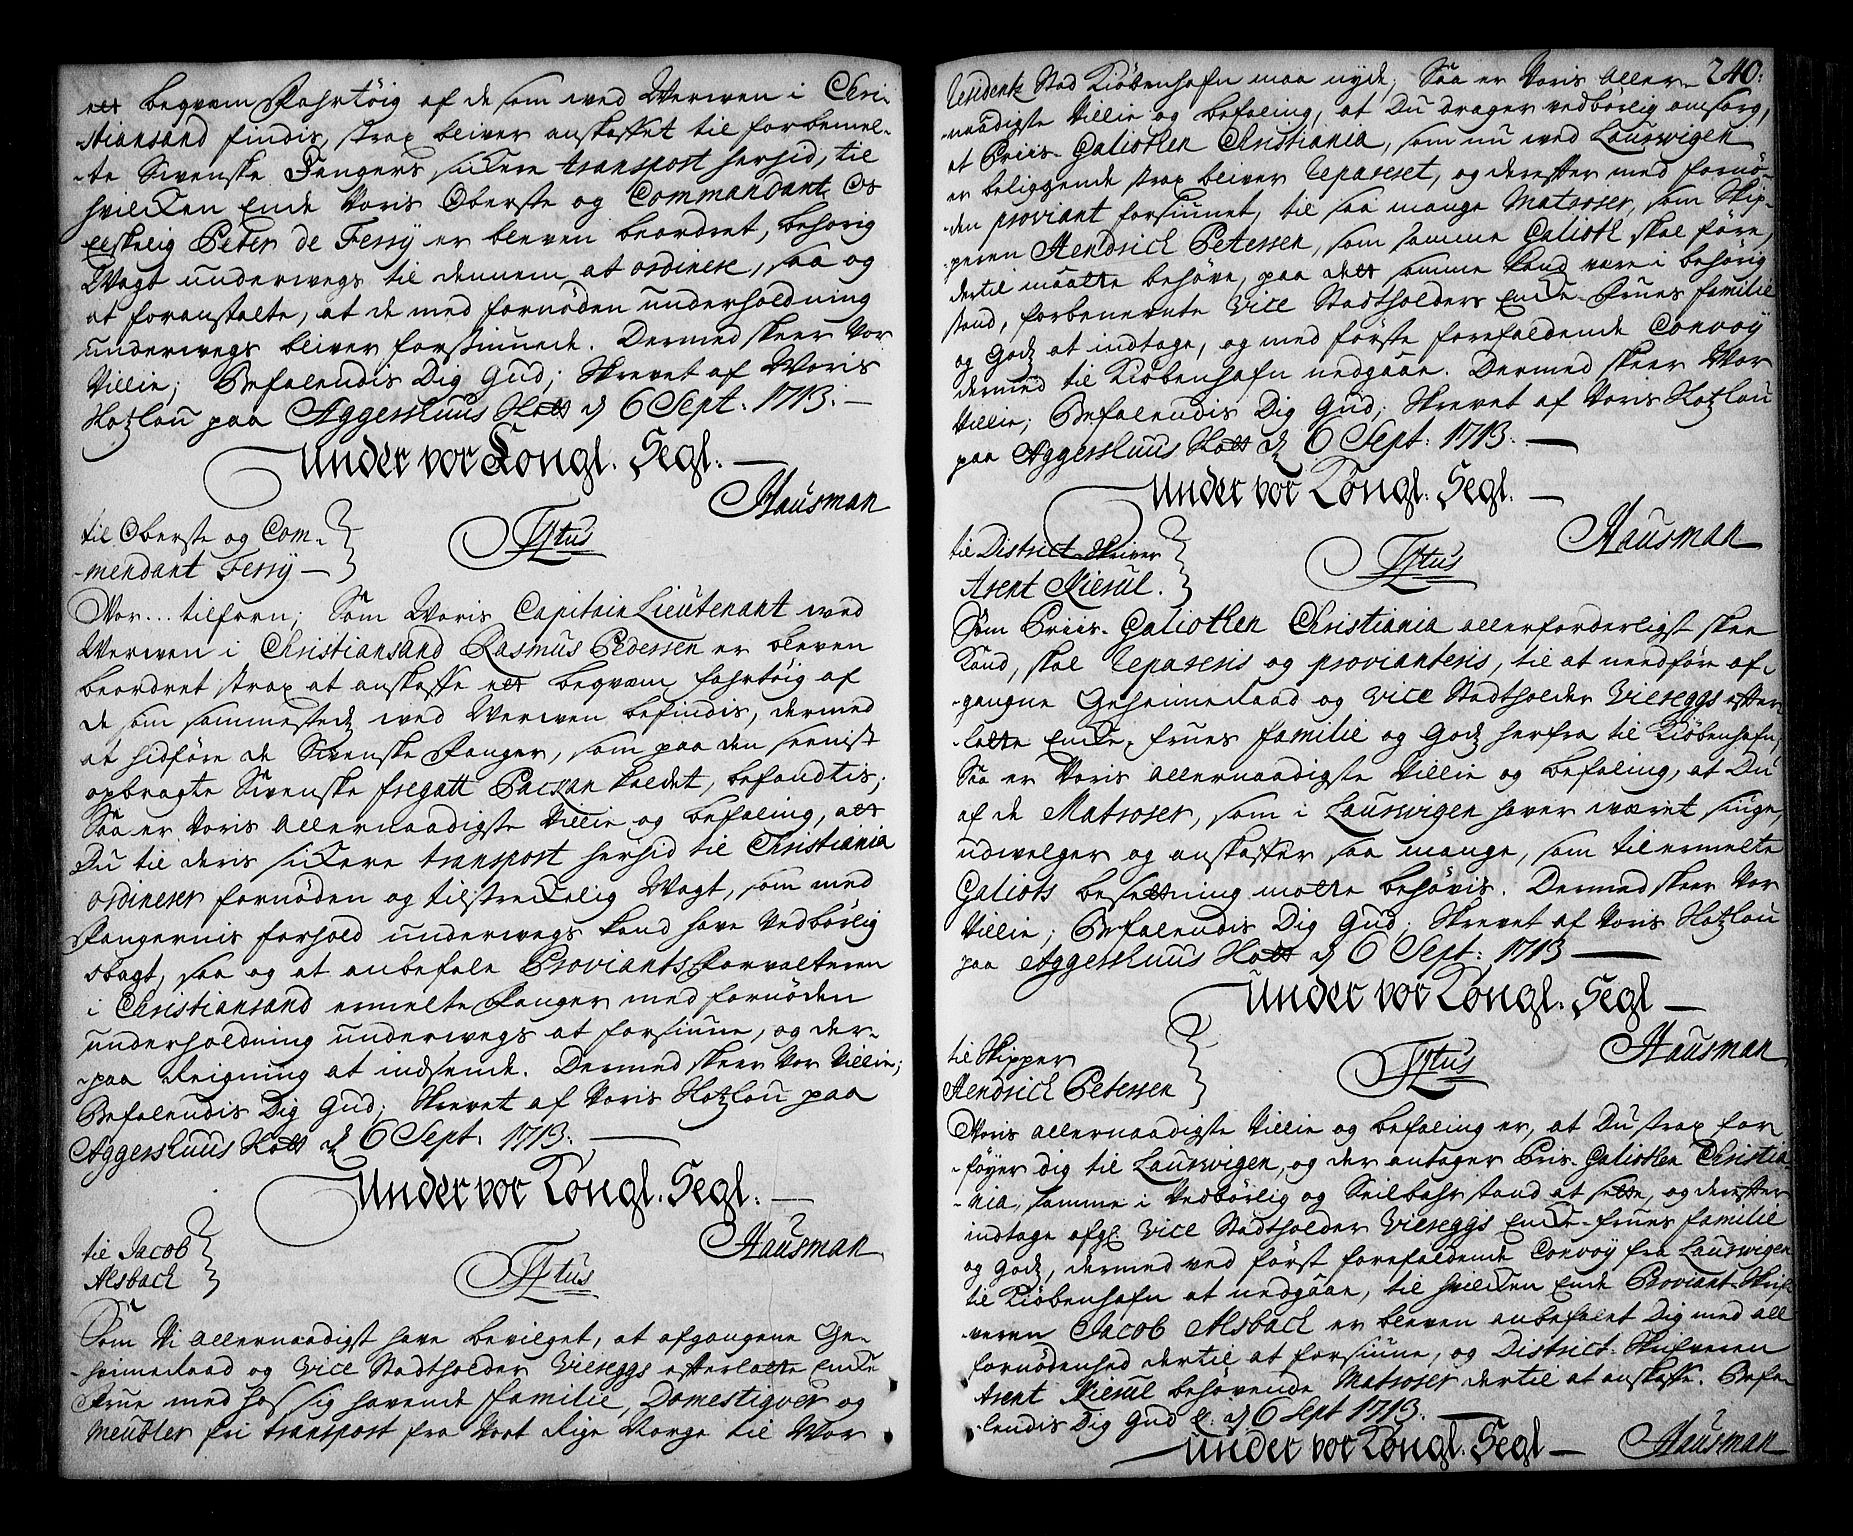 ett beqvem Fahrtöig af de som ved Werwen i Chri-
stiansand findis, strax bliver anskaffet til forbemel-
-te Swenske Fangers sickere transport herhid, til
hvilcken Ende Voris Oberste og Commandant Os
Elskelig Peter de Ferry er bleven beordret, behörig
Wagt underwegs til dennem at ordinere, saa og
at foranstalte, at de med fornöden underholdning
underwegs bliver forsiunede. Dermed skeer Vor
Villie; Befalendis Dig Gud; Skrevet af Woris
Hotzlou paa Aggershuus Slott d 6 Sept: 1713.—
Under vor Kongl. Segl.—
Hausman
til Oberste og Com-
-mendant Ferry—
Tytus
Vor... tilforn; Som Woris Capitain Lieutenant wed
Werwen i Christiansand Rasmus Pedersen er bleven
beordret strax at anskaffe ett beqvem fahrtöig af
de som sammestedz wed Werwen befindis, dermed
at hidföre de Swenske Fanger, som paa den seenist
opbragte Swenske fregatt Packan kaldet, befandtis;
Saa er Voris allernaadigste Villie og befaling, att
Du til deris sickere transport herhid til Christiania
ordinerer fornöden og tilstreckelig Wagt, som med
Fangernis forhold underwegs kand have Vedbörlig
obagt, saa og at anbefale Proviants Forvalteren
i Christiansand ermelte Fanger med fornöden
underholdning underwegs at forsiune, og der-
-paa Reigning at indsende. Dermed skeer Vor Villie;
Befalendis Dig Gud; Skrevet af Voris Hotzlou paa
Aggershuus Slott d 6 Sept. 1713.—
Under vor Kongl. Segl.—
Hausman
til Jacob
Alsback
Tytus
Som Vi allernaadigst have bevilget, at afgangene Ge-
-heimeraad og Vice Stadtholder Vieregg's efterlatte Encke
Frue med hos sig havende familie, Domestiqver og
Meubler fri transport fra Vort Rige Norge til Wor
240.
Residentz Stad Kiöbenhafn maa nyde; Saa er Voris Aller-
-naadigste Villie og befaling, at Du drager vedbörlig omsorg,
at Priis-Galiothen Christiania, som nu wed Laurwigen
er beliggende strax bliver repareret, og derefter med fornö-
-den proviant forsiunet, til saa mange Matroser, som Skip-
-peren Hendrich Petersen, som samme Galioth skal före,
dertil maatte behöve, paa dett samme kand være i behörig
stand, forbenevnte Vice Stadtholders Encke-Frues familie
og Godz at indtage, og med förste forefaldende Convoy
dermed til Kiöbenhafn nedgaae. Dermed skeer Vor
Villie; Befalendis Dig Gud; Skrevet af Voris Hotzlou
paa Aggershuus Slott d 6 Sept: 1713.—
Under vor Kongl. Segl.—
Hausman
til District Skriver
Arent Kierul.
Tytus
Som Priis-Galiothen Christiania allerforderligst skee
kand, skal repareris og provianteris, til at needföre af-
-gangne Geheimeraad og Vice Stadtholder Vieregg's efter-
-latte Encke-Frues familie og Godz herfra til Kiöbenhafn,
Saa er Voris allernaadigste Villie og befaling, at Du
af de Matroser, som i Laurwigen haver wæret siuge,
udvelger og anskaffer saa mange, som til ermelte
Galiots besettning motte behövis. Dermed skeer Vor
Villie; Befalendis Dig Gud; Skrevet af Voris Hotzlou
paa Aggershuus Slott d 6 Sept: 1713—
Under vor Kongl. Segl—
Hausman
til Skipper
Hendrich Petersen
Tytus
Voris allernaadigste Villie og befaling er, at Du strax for-
-föyer dig til Laurwigen, og der antager Pris-Galiothen Christia-
-nia, samme i Vedbörlig og Seilbahr stand at sette, og derefter
indtage afg. Vice Stadtholder Vieregg's Encke-Frues familie
og Godz, dermed ved först forefaldende Convoy fra Laurwigen
til Kiöbenhafn at nedgaae, til hvilcken Ende Proviant-Skri-
veren Jacob Alsback er bleven anbefalet Dig med all
fornödenhed dertil at forsiune, og District-Skrifveren
Arent Kierul behövende Matroser dertil at anskaffe. Befa-
-lendis Dig Gud &. d 6 Sept 1713.—
under vor Kongl. Segl—
Hausman